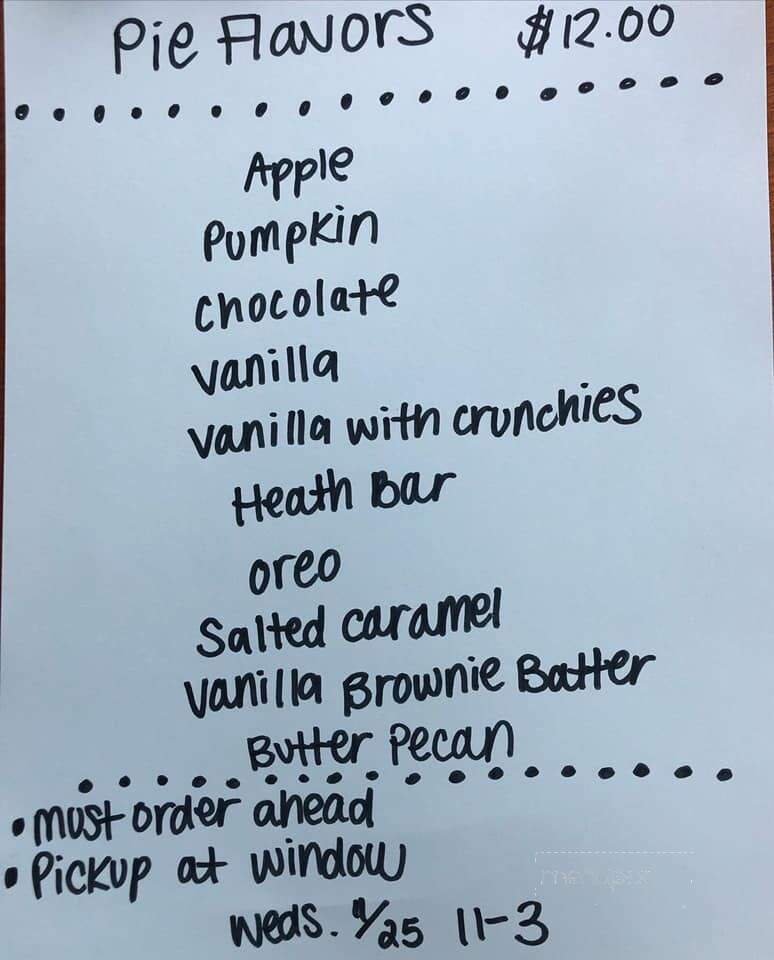 Pie Flavors $12.00
Apple
Pumpkin
chocolate
vanilla
vanilla with crunchies
Heath Bar
oreo
Salted caramel
vanilla Brownie Batter
Butter Pecan
• must order ahead
• Pickup at window
Weds. 11/25 11-3